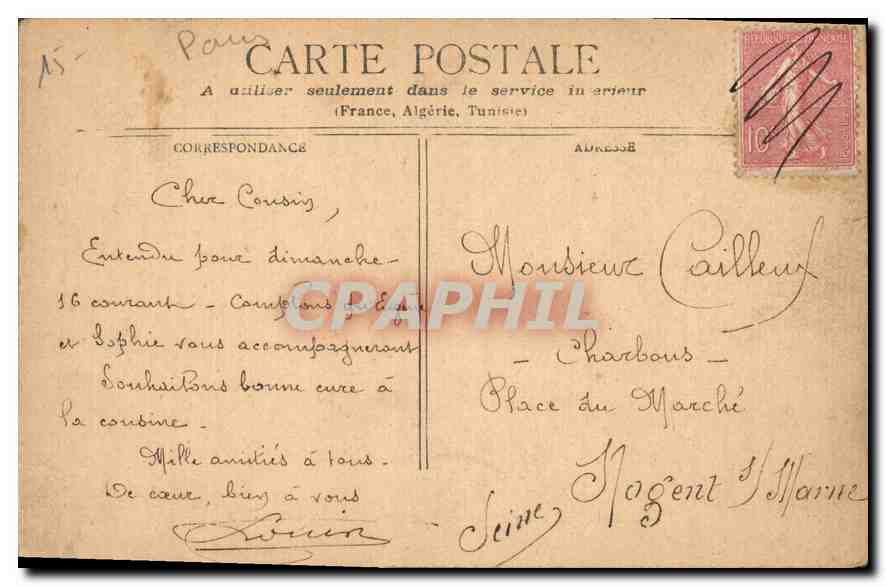 15-
Paris
CARTE POSTALE
A utiliser seulement dans le service interieur
(France, Algérie, Tunisie)
CORRESPONDANCE
Cher Cousin,
Entendu pour dimanche -
16 courant - Comptons qu'Eugène
et Sophie vous accompagneront
Souhaitons bonne cure à
la cousine -
Mille amitiés à tous -
De cœur, bien à vous
Louis
ADRESSE
Monsieur Cailleux
- Charbons -
Place du Marché
Nogent s/ Marne
Seine
10
CPAPHIL